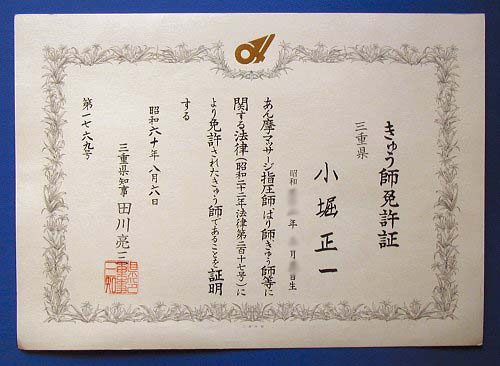 きゅう師免許証
三重県
小堀正一
昭和 年 月 日生
あん摩マッサージ指圧師、はり師、きゅう師等に
関する法律(昭和二十二年法律第二百十七号)に
より免許されたきゅう師であることを証明
する
昭和六十年八月六日
三重県知事 田川亮三
第一七六九号